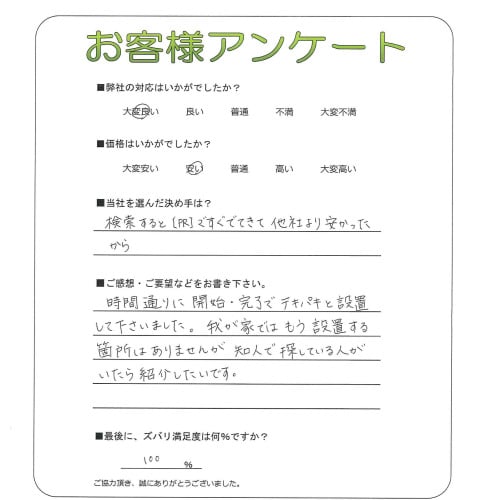 お客様アンケート
■弊社の対応はいかがでしたか?
大変良い 良い 普通 不満 大変不満
■価格はいかがでしたか?
大変安い 安い 普通 高い 大変高い
■当社を選んだ決め手は?
検索すると[PR]ですぐでてきて他社より安かった
から
■ご感想・ご要望などをお書き下さい。
時間通りに開始・完了でテキパキと設置
して下さいました。我が家ではもう設置する
箇所はありませんが知人で探している人が
いたら紹介したいです。
■最後に、ズバリ満足度は何%ですか?
100 %
ご協力頂き、誠にありがとうございました。